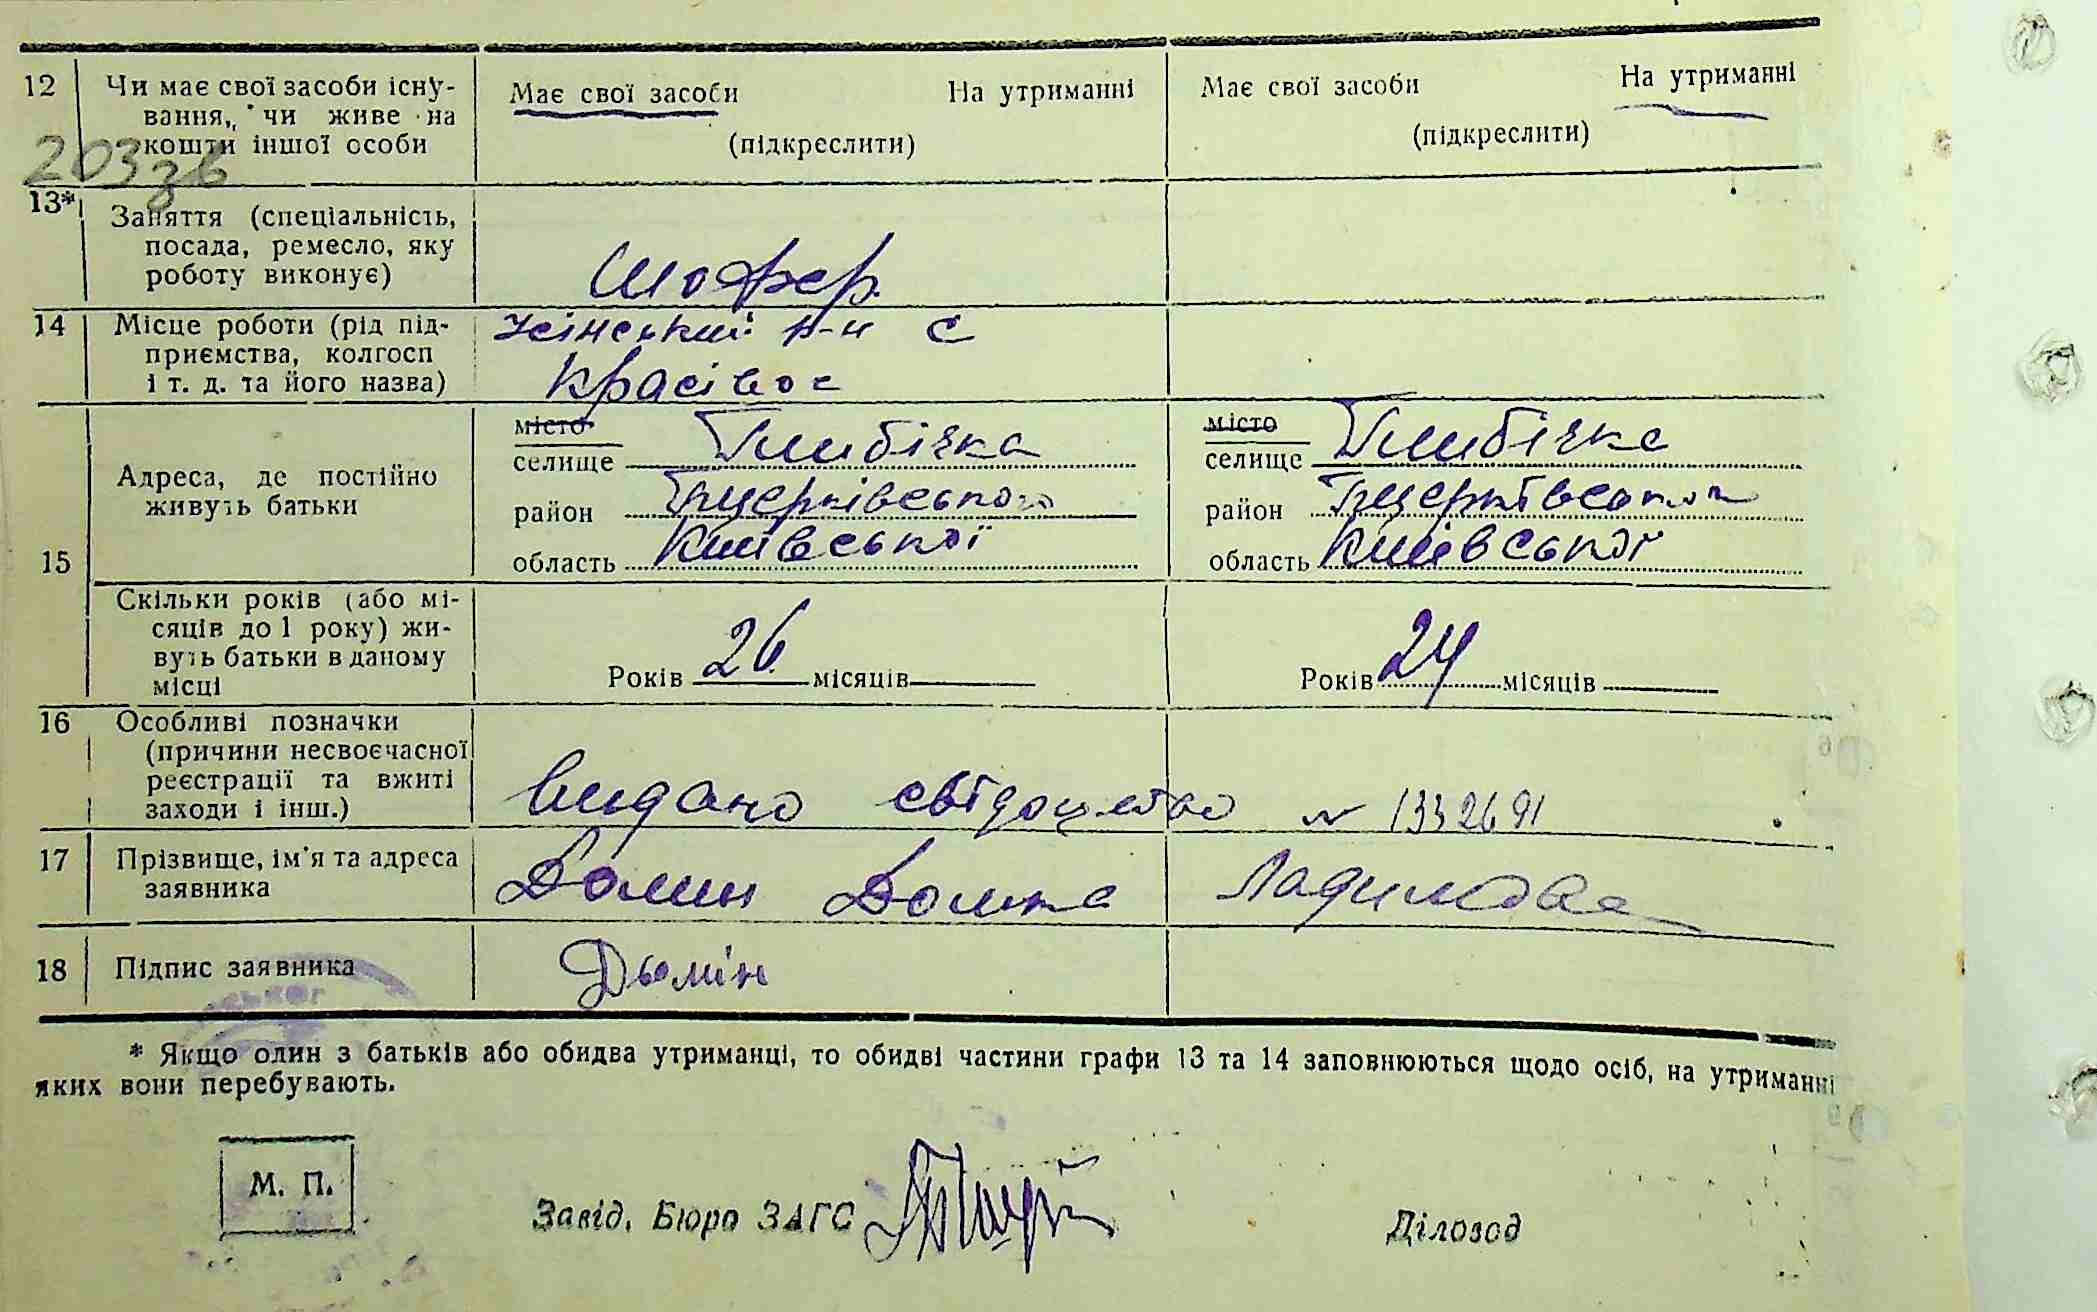 12 Чи має свої засоби існу-
вання, чи живе на
кошти іншої особи
Має свої засоби На утриманні
(підкреслити)
Має свої засоби На утриманні
(підкреслити)
203 зв
13* Заняття (спеціальність,
посада, ремесло, яку
роботу виконує)
Шофер
14 Місце роботи (рід під-
приємства, колгосп
і т. д. та його назва)
р-н с
Красівос
15
Адреса, де постійно
живуть батьки
місто
селище Глибічка
район Бцерківського
область Київської
місто
селище Глибічка
район Бцерківського
область Київської
Скільки років (або мі-
сяців до 1 року) жи-
вуть батьки в даному
місці
Років 26 місяців
Років 24 місяців
16 Особливі позначки
(причини несвоєчасної
реєстрації та вжиті
заходи і інш.)
Видано свідоцтво № 1332691
17 Прізвище, ім'я та адреса
заявника
18 Підпис заявника
Дымін
* Якщо один з батьків або обидва утриманці, то обидві частини графи 13 та 14 заповнюються щодо осіб, на утриманні
яких вони перебувають.
М. П.
Завід. Бюро ЗАГС
Діловод